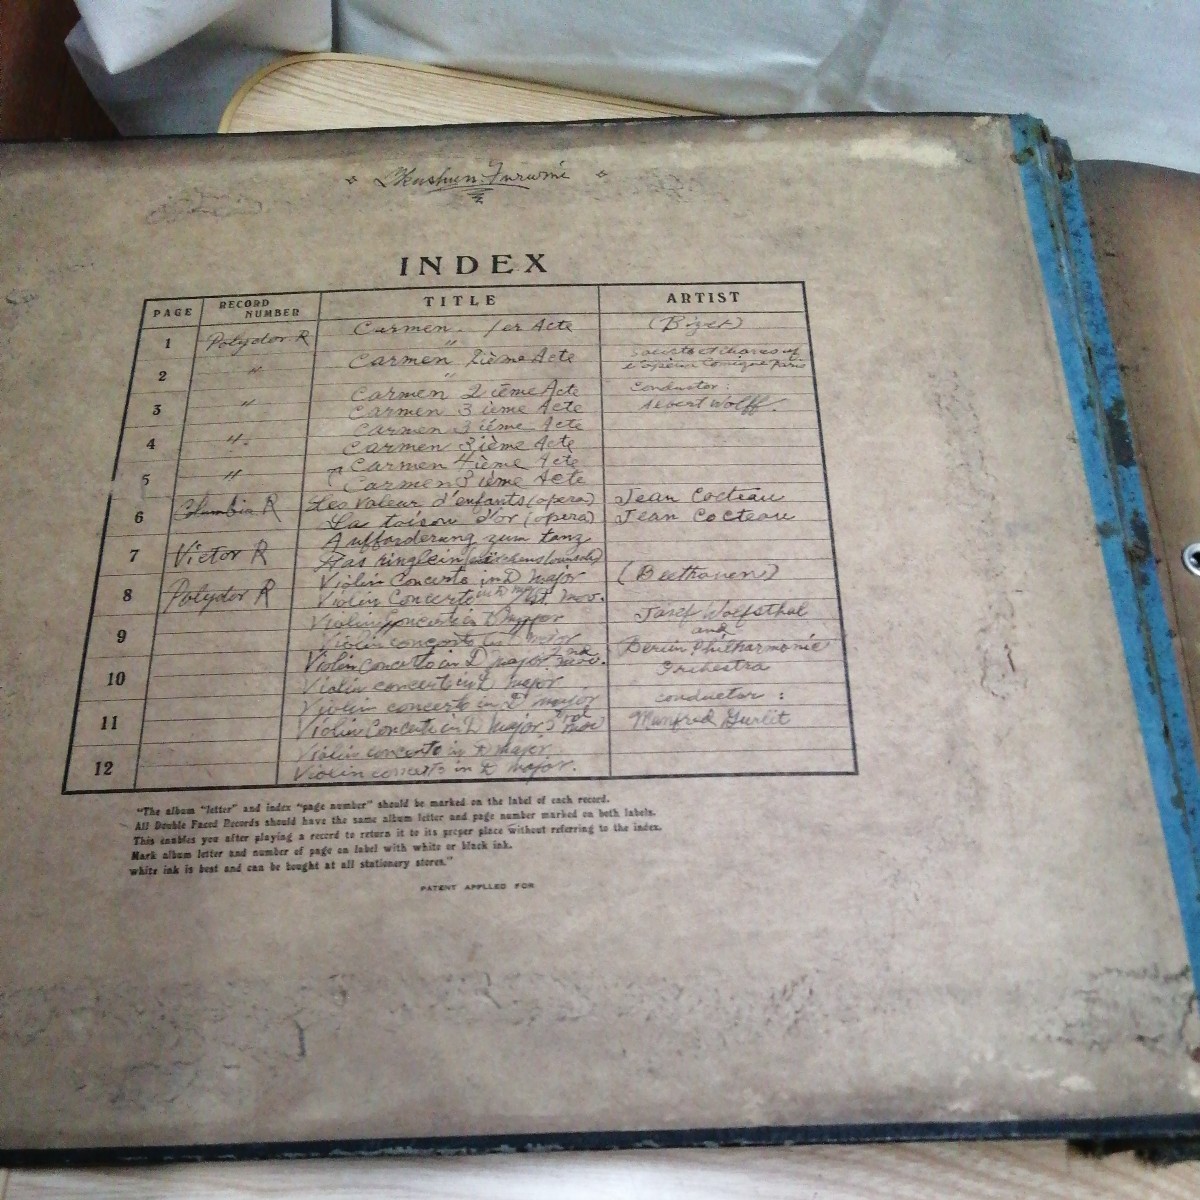 INDEX
PAGE RECORD NUMBER TITLE ARTIST
1 Polydor R Carmen. 1er Acte (Bizet)
"
2 " Carmen 2ième Acte
"
Conductor:
3 " Carmen 2 ième Acte Albert Wolff.
Carmen 3 ième Acte
4 " Carmen 3 ième Acte
Carmen 3 ième Acte
5 " Carmen 4 ième Acte
Carmen 3 ième Acte
6 Columbia R Les Voleur d'enfants (opera) Jean Cocteau
La toison d'or (opera) Jean Cocteau
7 Victor R Aufforderung zum tanz
Das ringlein
8 Polydor R Violin Concerto in D major (Beethoven)
Violin Concerto in D maj 1st. mov.
9 Violin concerto in D major Josef Wolfsthal
Violin concerto in D major and
10 Violin concerto in D major 2nd mov. Berlin Philharmonic
Violin concerto in D major Orchestra
11 Violin concerto in D major conductor:
Violin Concerto in D major 3rd mov Manfred Gurlit
12 Violin concerto in D major
Violin concerto in D major.
"The album "letter" and index "page number" should be marked on the label of each record.
All Double Faced Records should have the same album letter and page number marked on both labels.
This enables you after playing a record to return it to its proper place without referring to the index.
Mark album letter and number of page on label with white or black ink.
white ink is best and can be bought at all stationery stores."
PATENT APPLLED FOR